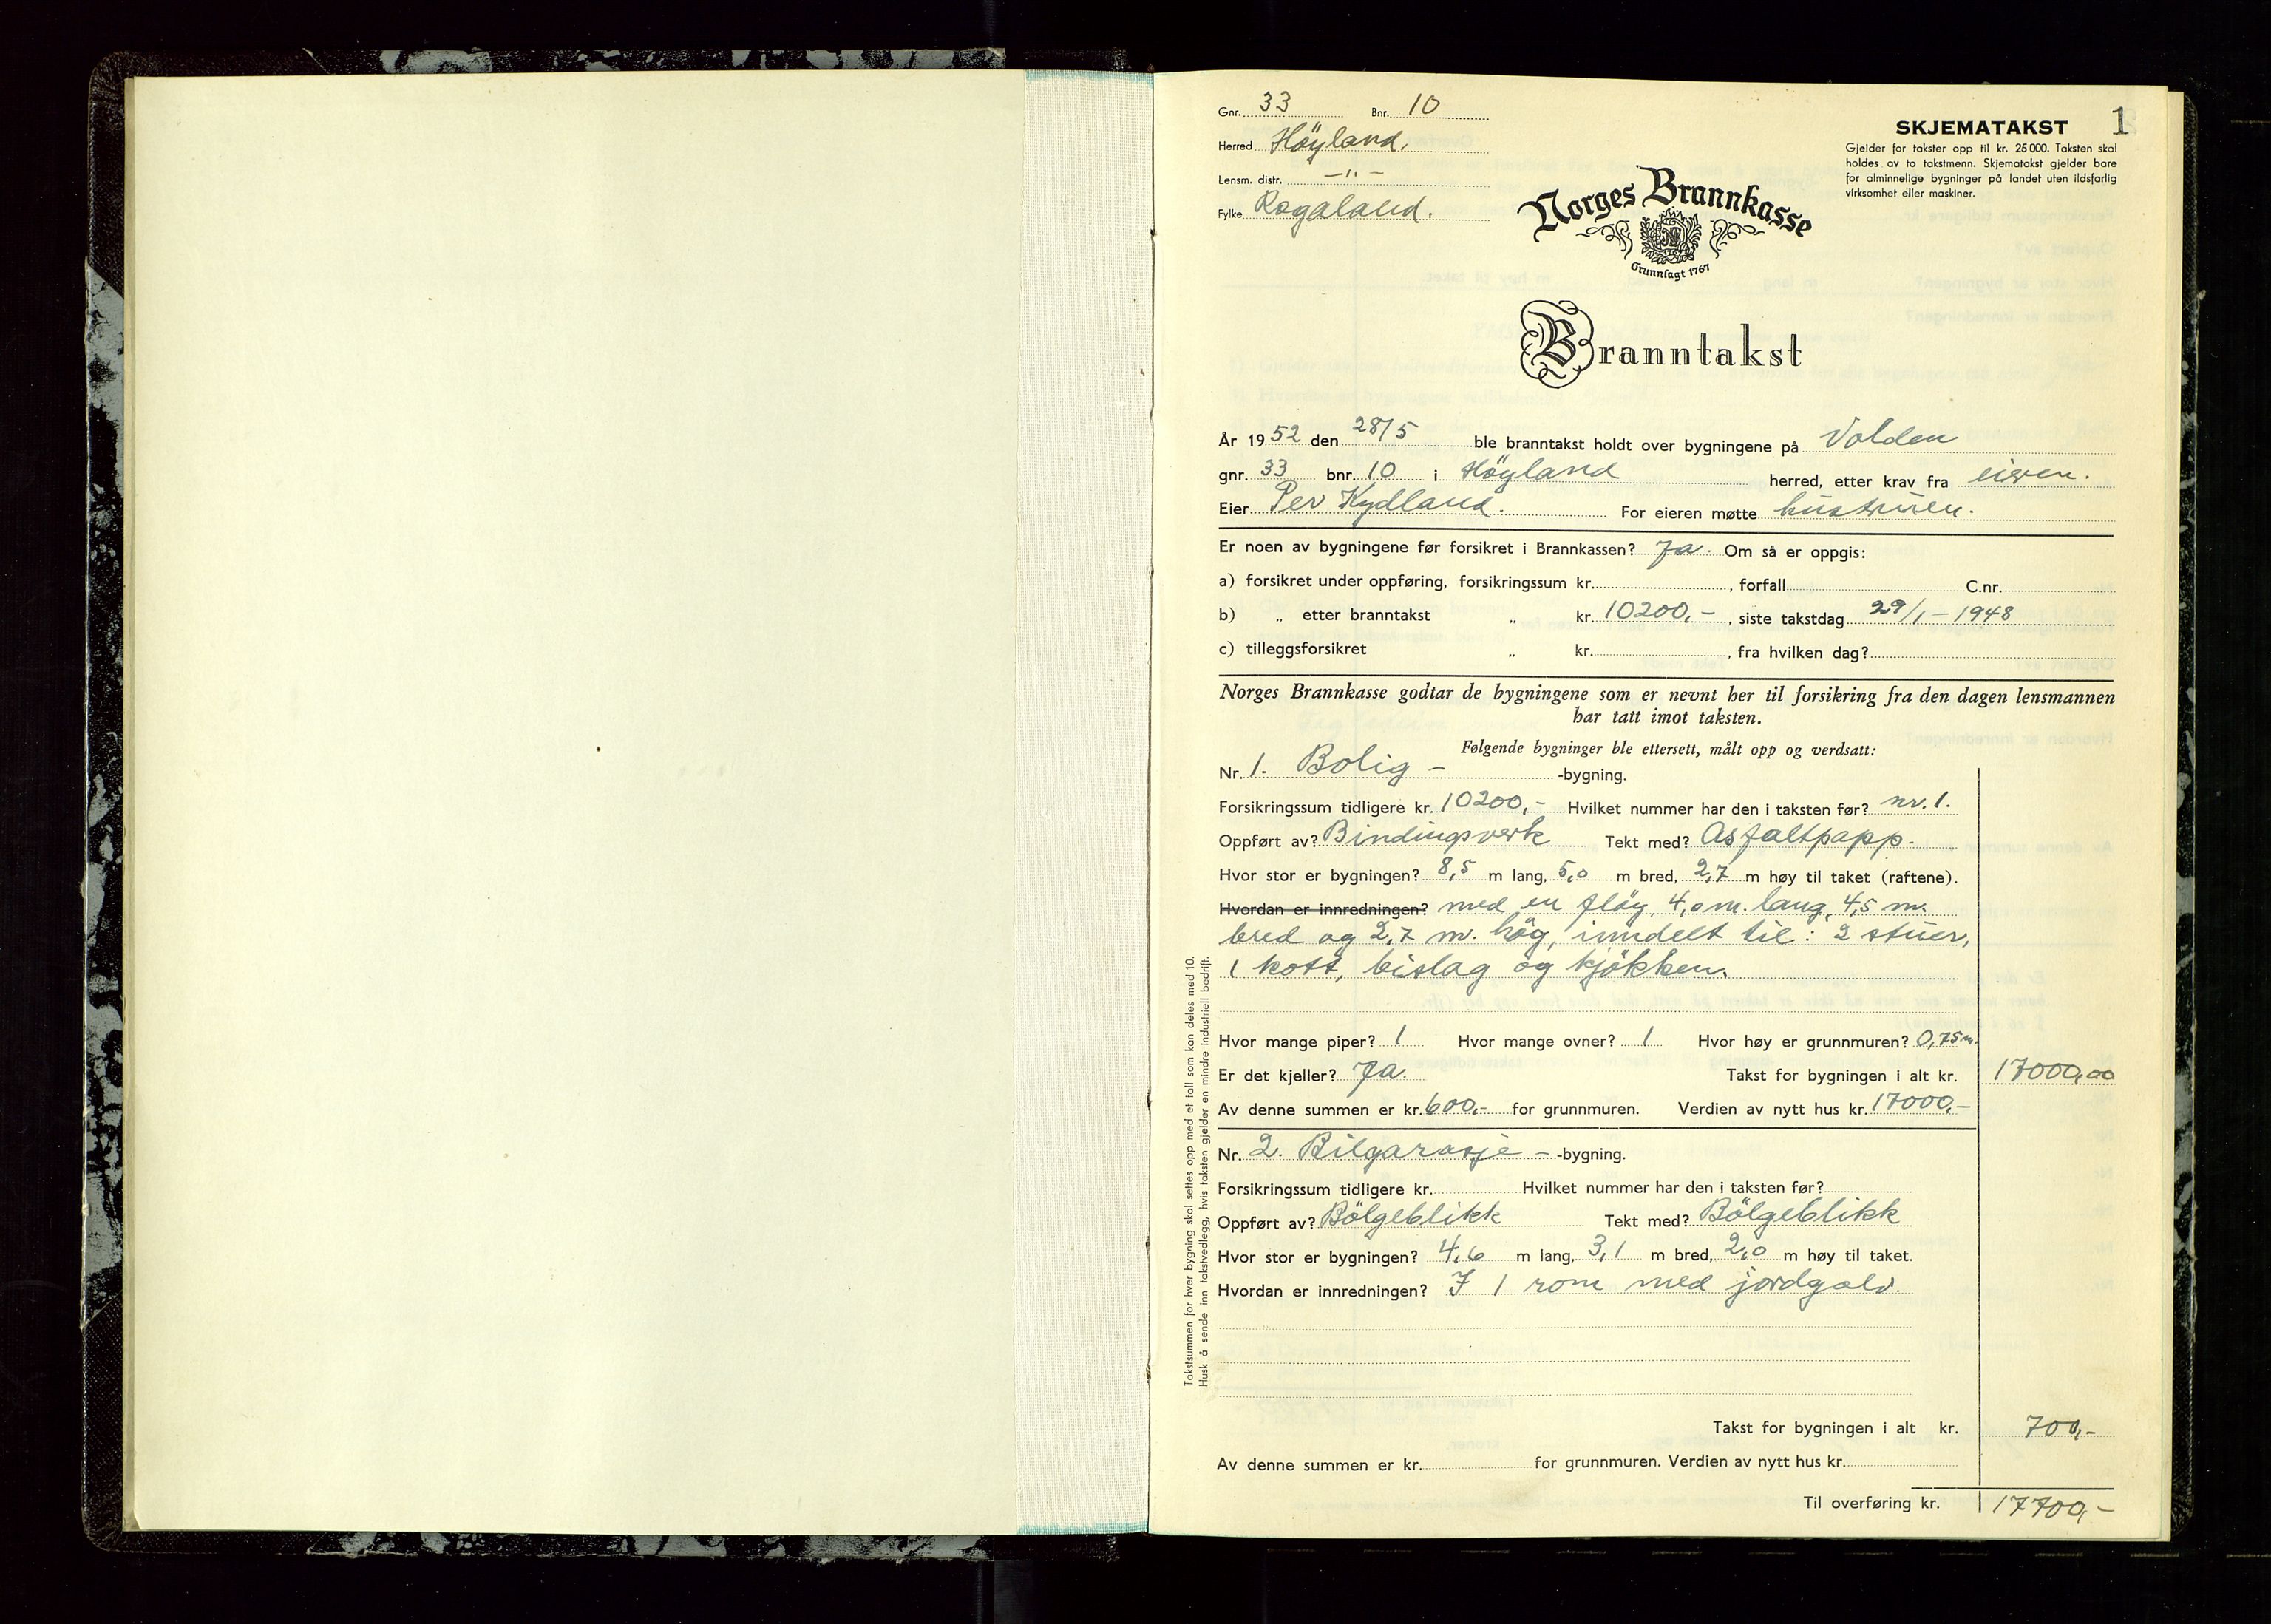 Gnr. 33 Bnr. 10
Herred Höyland.
Lensm. distr. —"—
Fylke Rogaland.
SKJEMATAKST 1
Gjelder for takster opp til kr. 25 000. Taksten skal
holdes av to takstmenn. Skjematakst gjelder bare
for alminnelige bygninger på landet uten ildsfarlig
virksomhet eller maskiner.
Norges Brannkasse
Grunnlagt 1767
Branntakst
År 1952 den 28/5 ble branntakst holdt over bygningene på Volden
gnr. 33 bnr. 10 i Höyland herred, etter krav fra eieren.
Eier Per Kydland. For eieren møtte hustruen.
Er noen av bygningene før forsikret i Brannkassen? Ja. Om så er oppgis:
a) forsikret under oppføring, forsikringssum kr. , forfall C.nr.
b) „ etter branntakst „ kr. 10200,- , siste takstdag 29/1-1948
c) tilleggsforsikret „ kr. , fra hvilken dag?
Norges Brannkasse godtar de bygningene som er nevnt her til forsikring fra den dagen lensmannen
har tatt imot taksten.
Følgende bygninger ble ettersett, målt opp og verdsatt:
Nr. 1. Bolig - -bygning.
Forsikringssum tidligere kr. 10200,- Hvilket nummer har den i taksten før? nr. 1.
Oppført av? Bindingsverk Tekt med? Asfaltpapp.
Hvor stor er bygningen? 8,5 m lang, 5,0 m bred, 2,7 m høy til taket (raftene).
Hvordan er innredningen? med en flöy, 4,0 m. lang, 4,5 m.
bred og 2,7 m. hög, inndelt til: 2 stuer,
1 kott, bislag og kjökken.
Hvor mange piper? 1 Hvor mange ovner? 1 Hvor høy er grunnmuren? 0,75 m.
Er det kjeller? Ja. Takst for bygningen i alt kr. 17000,00
Av denne summen er kr. 600,- for grunnmuren. Verdien av nytt hus kr. 17000,-
Nr. 2. Bilgarasje - -bygning.
Forsikringssum tidligere kr. Hvilket nummer har den i taksten før?
Oppført av? Bölgeblikk Tekt med? Bölgeblikk
Hvor stor er bygningen? 4,6 m lang, 3,1 m bred, 2,0 m høy til taket.
Hvordan er innredningen? I 1 rom med jordgolv.
Takst for bygningen i alt kr. 700,-
Av denne summen er kr. for grunnmuren. Verdien av nytt hus kr.
Til overføring kr. 17700,-
Takstsummen for hver bygning skal settes opp med et tall som kan deles med 10.
Husk å sende inn takstvedlegg, hvis taksten gjelder en mindre industriell bedrift.